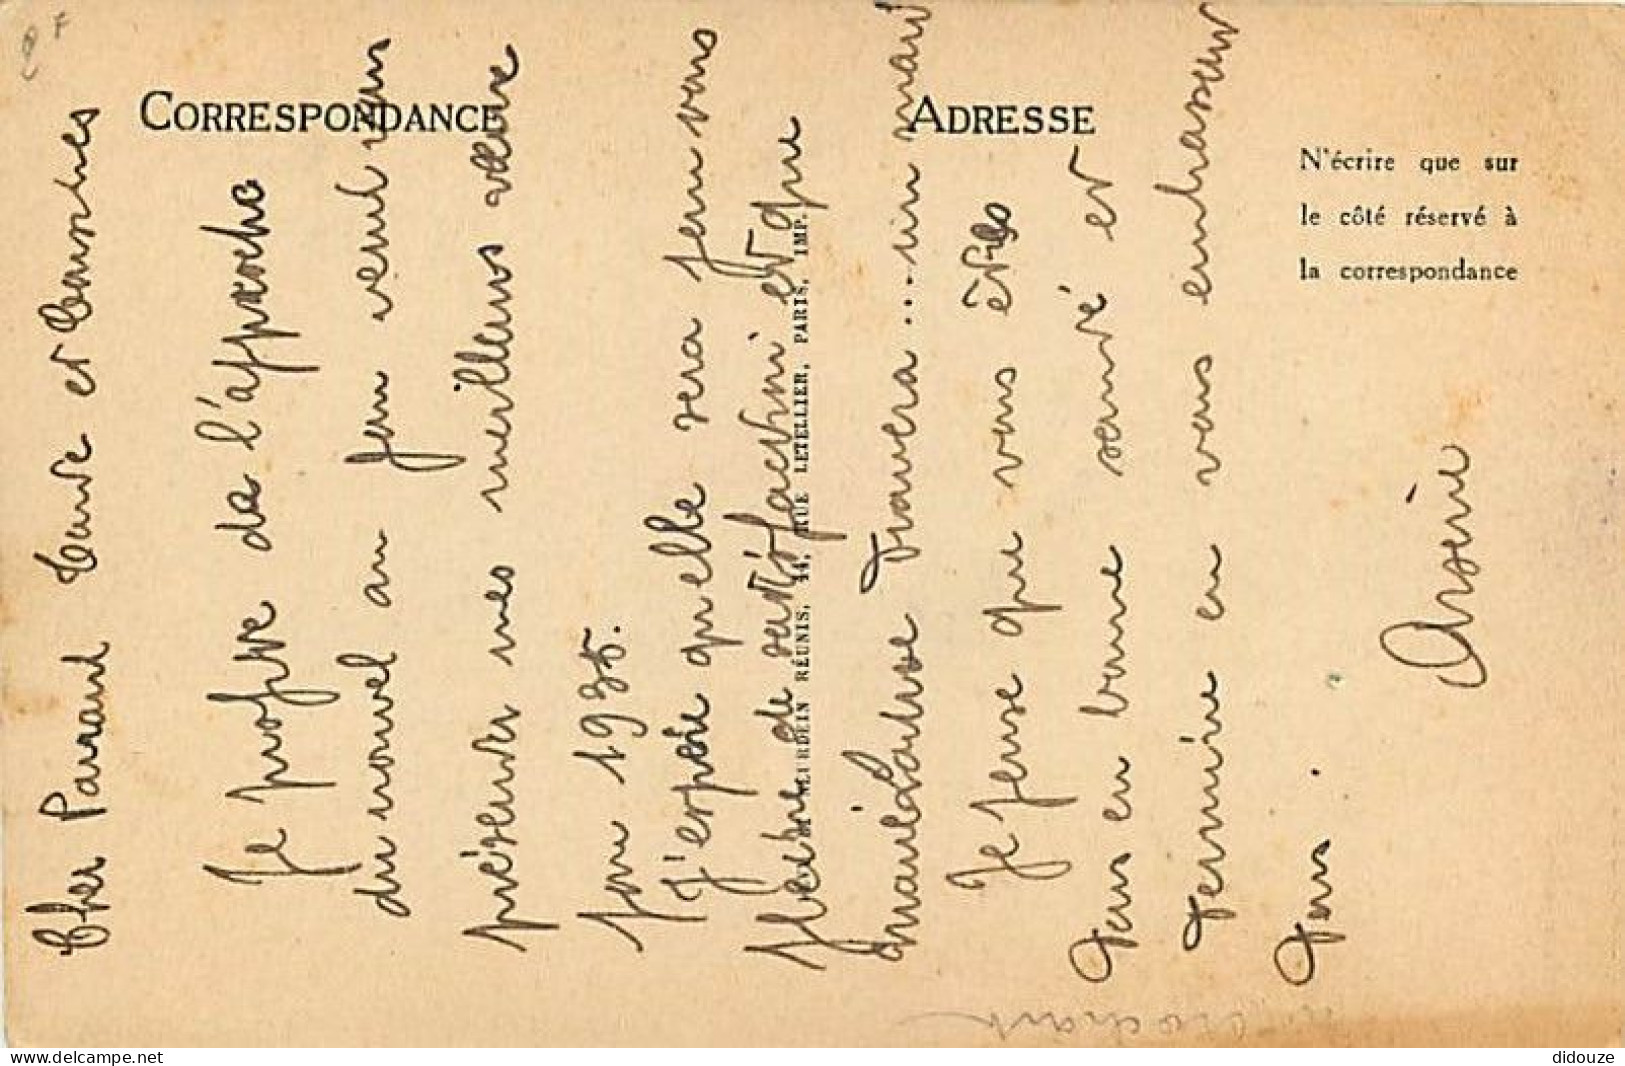 CORRESPONDANCE
ADRESSE
N'écrire que sur
le côté réservé à
la correspondance
Cher Parrand Tante et Cousines
Je profite de l'approche
du nouvel an pour venir vous
présenter mes meilleurs vœux
pour 1935.
J'espère qu'elle sera pour vous
pleine de satisfaction et que
Marie Louise trouvera.... un mari
Je pense que vous êtes
tous en bonne santé et
termine en vous embrassant
tous.
Arsène
MEURDEIN RÉUNIS, 44, RUE LETELLIER, PARIS, IMP.
delcampe.net
didouze